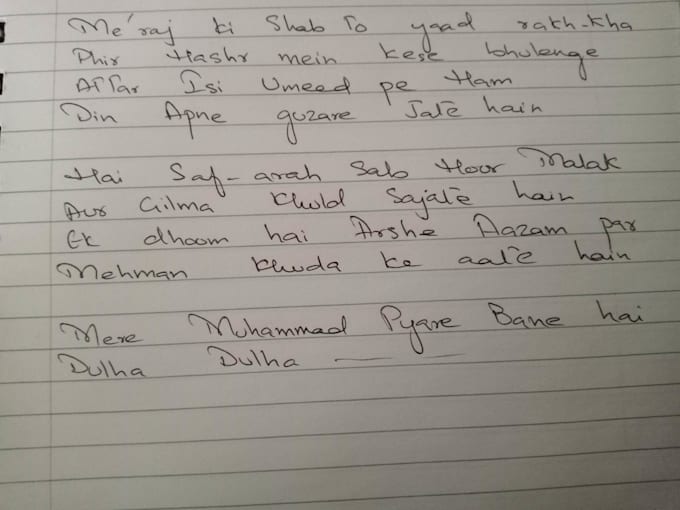 Me'raj ki Shab To yaad rakh-kha
Phir Hashr mein kese bhulenge
Attar Isi Umeed pe Ham
Din Apne guzare Jate hain
Hai Saf-arah Sab Hoor Malak
Aur Gilma Khuld Sajate hain
Ek dhoom hai Arshe Aazam par
Mehman Khuda ke aate hain
Mere Muhammad Pyare Bane hai
Dulha Dulha —